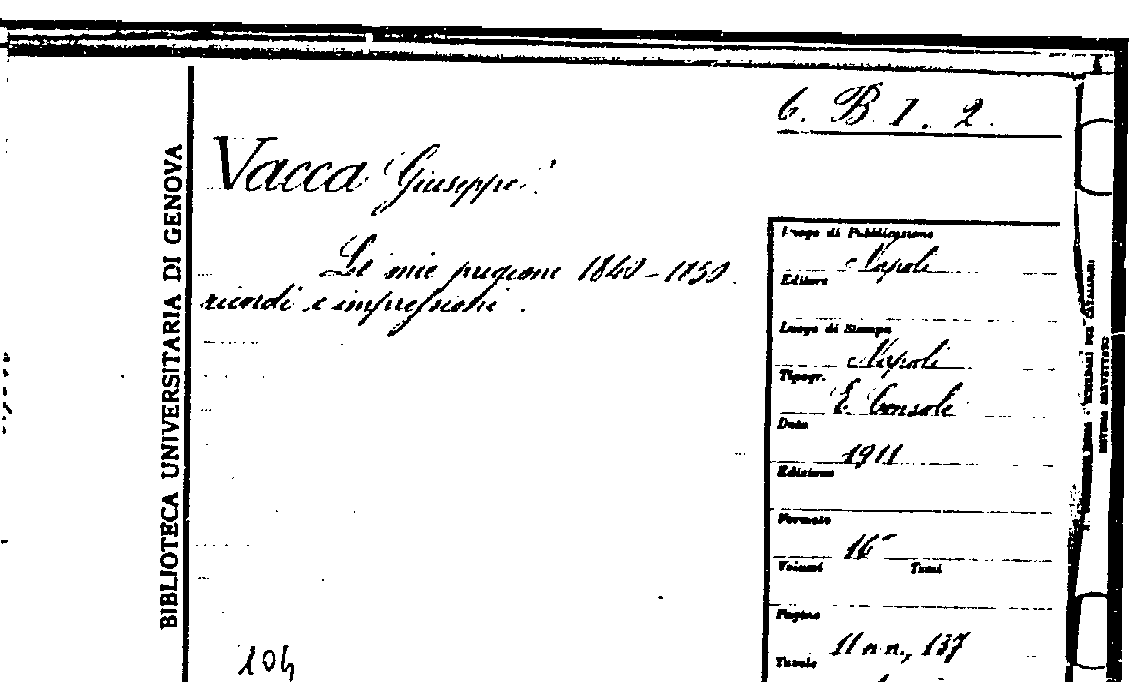 6. B. 1. 2.
BIBLIOTECA UNIVERSITARIA DI GENOVA
Vacca Giuseppe
Le mie prigioni 1840-1850.
ricordi e impressioni.
Luogo di Pubblicazione
Napoli
Editore
Luogo di Stampa
Napoli
Tipogr.
E. Console
Data
1911
Edizione
Formato
16°
Volumi Tomi
Pagine
11 n n., 137
Tavole
104